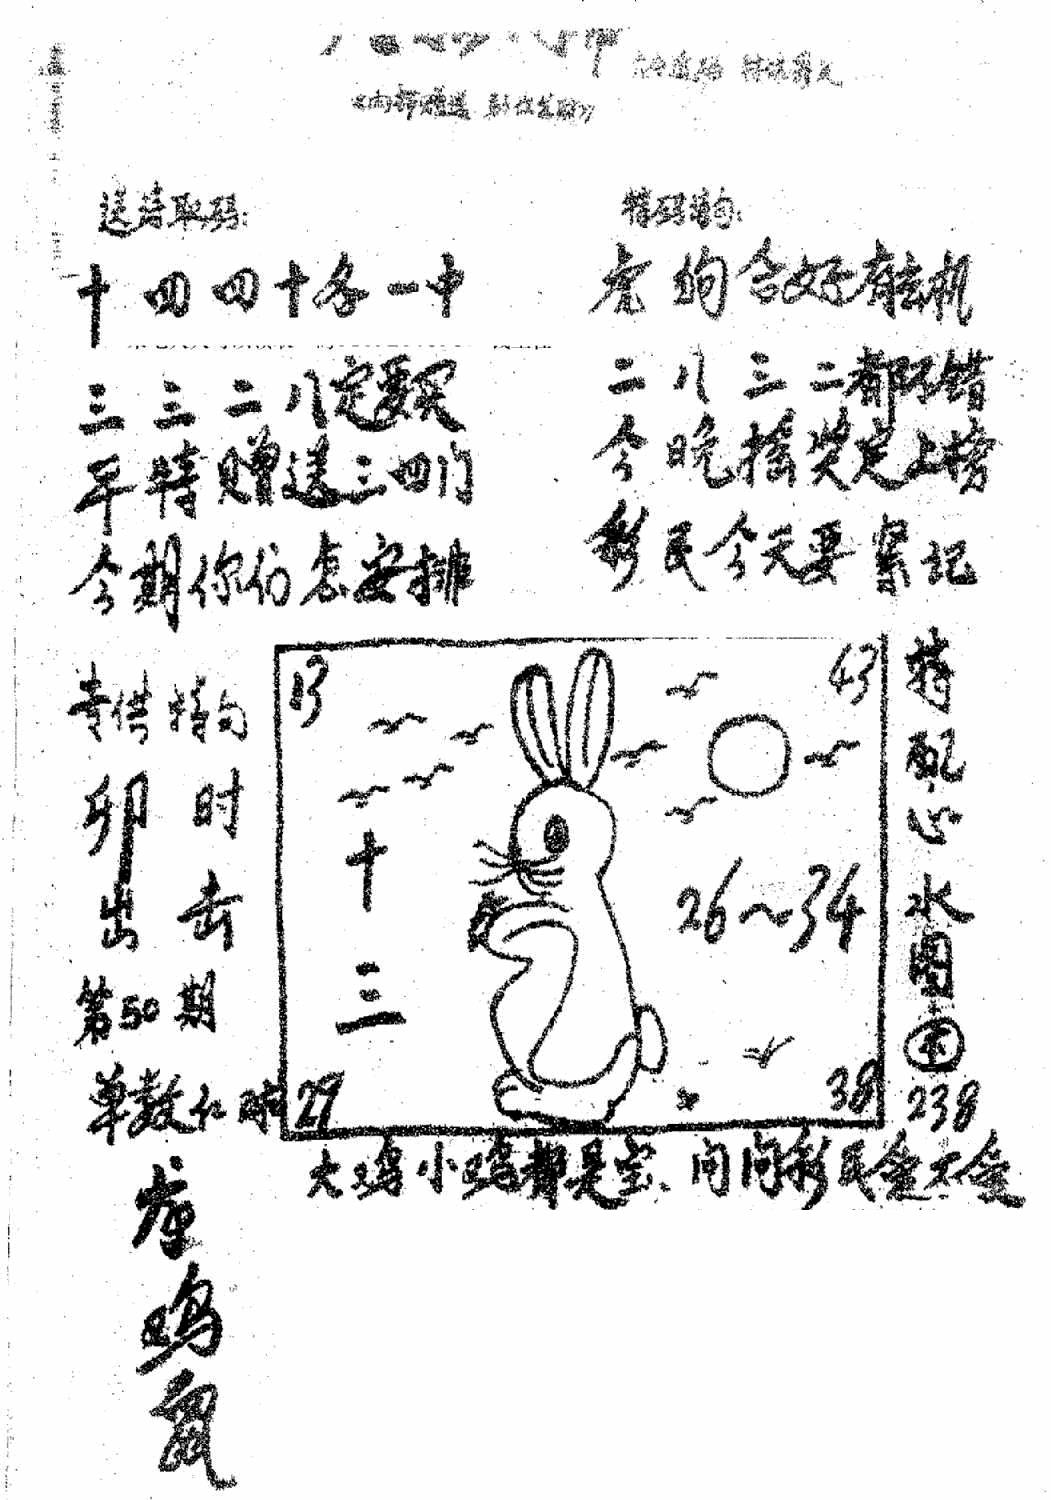 送特取码:
十四四十各一中
三三二八定要买
平特赠送三四门
今期你们怎安排
特码诗句:
虎狗合好有玄机
二八三二都不错
今晚摇奖定上榜
彩民今天要紧记
专供特句
卯时
出击
第50期
单数红
13
43
十三
26~34
29
38
特配心水图
238
大鸡小鸡都是宝、问问彩民爱不爱
鸡
鼠